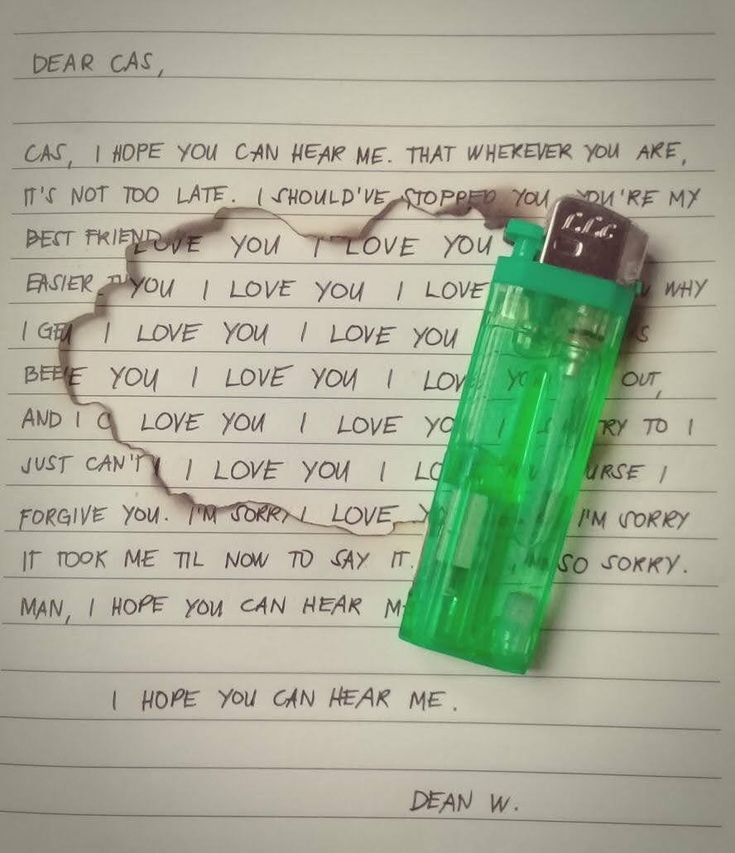 DEAR CAS,
CAS, I HOPE YOU CAN HEAR ME. THAT WHEREVER YOU ARE,
IT'S NOT TOO LATE. I SHOULD'VE STOPPED YOU. YOU'RE MY
BEST FRIEND LOVE YOU I LOVE YOU
EASIER YOU I LOVE YOU I LOVE WHY
I GE I LOVE YOU I LOVE YOU
YOU I LOVE YOU I LOV YO OUT,
AND I LOVE YOU I LOVE YO I RY TO I
JUST CAN'T I LOVE YOU I LO URSE I
FORGIVE YOU. I'M SORRY I LOVE I'M SORRY
IT TOOK ME TIL NOW TO SAY IT. SO SORRY.
MAN, I HOPE YOU CAN HEAR M
I HOPE YOU CAN HEAR ME.
DEAN W.